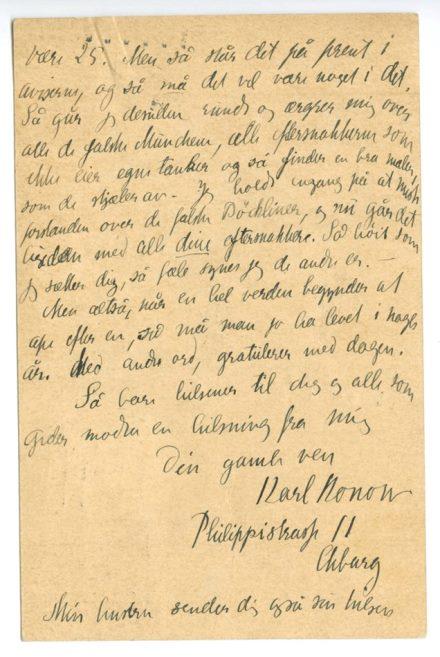 være 25. Men så står det på prent i
aviserne, og så må det vel være noget i det.
Så går jeg desuden rundt og ærgrer mig over
alle de falske Münchern, alle eftersnakkerne som
ikke eier egne tanker og så finder en bra maler,
som de stjæler av. Jeg holdt engang på at miste
forstanden over de falske Böckliner, og nu går det
ligedan med alle dine eftersnakkere. Så høit som
jeg sætter dig, så fæle synes jeg de andre er. —
Men altså, når en hel verden begynder at
ape efter en, så må man jo ha levet i nogle
år. Med andre ord, gratulerer med dagen.
Så bare hilsener til dig og alle som
gider modta en hilsning fra mig
Din gamle ven
Karl Konow
Philippistrasse 11
Chburg
Min hustru sender dig også sin hilsen